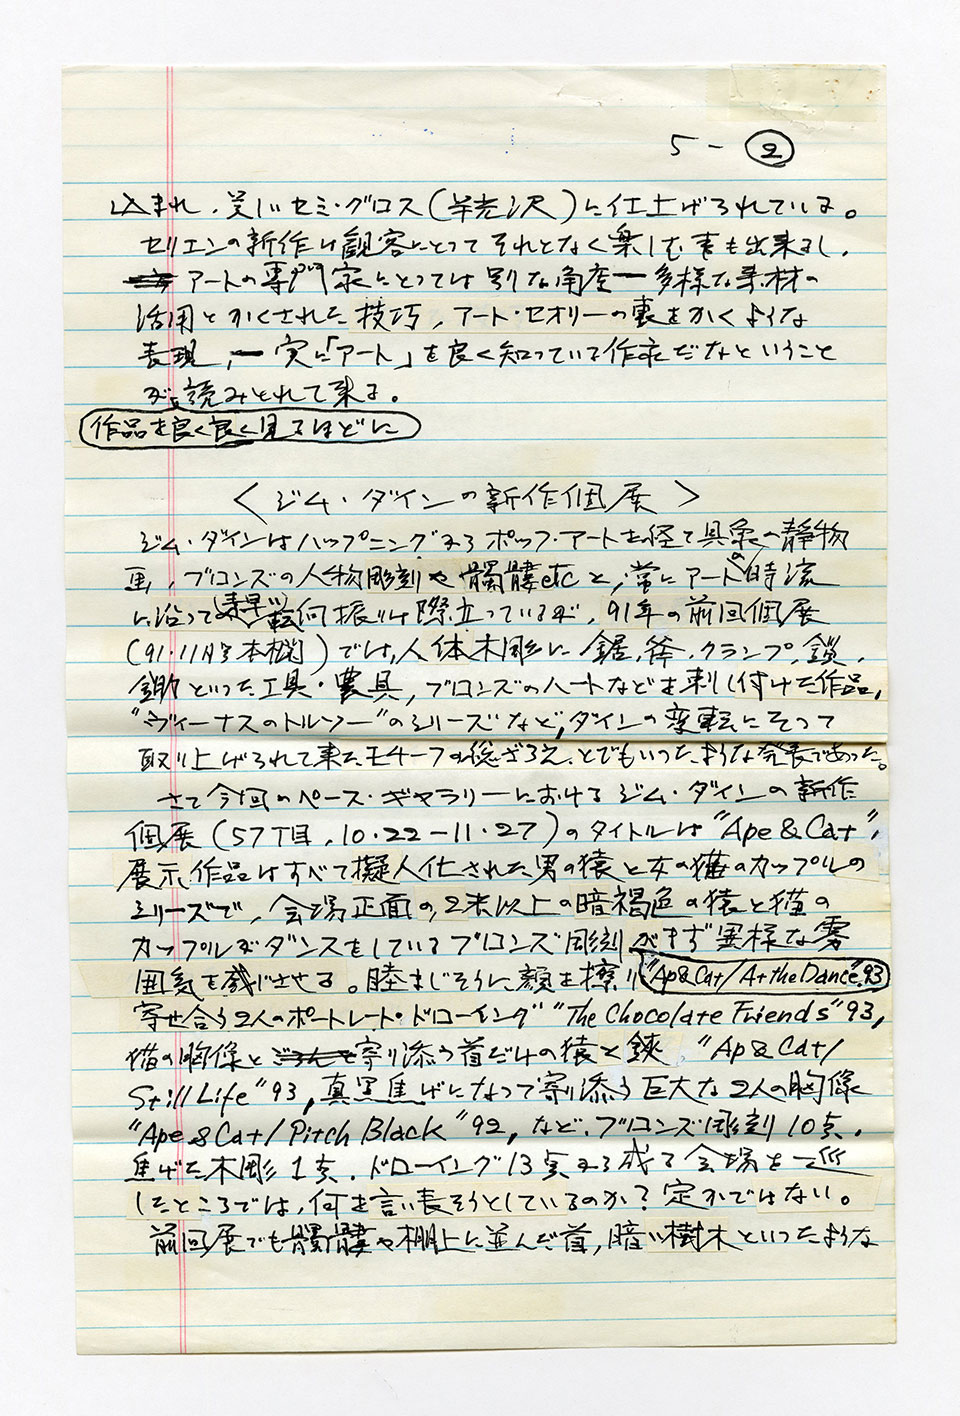 5-②
込まれ、美しいセミ・グロス(半光沢)に仕上げられている。
セリエンの新作は観客にとってそれとなく楽しむ事も出来るし、
アートの専門家にとっては別な角度ー多様な素材の
活用とかくされた技巧、アート・セオリーの裏をかくような
表現、ー実に「アート」を良く知っている作家だなということ
が読みとれて来る。
作品を良く良く見るほどに
〈ジム・ダインの新作個展〉
ジム・ダインはハップニングからポップ・アートを経て具象の静物
画、ブロンズの人物彫刻や髑髏etcと、常にアートの時流
に沿って素早い転向振りは際立っているが、91年の前回個展
(91・11月号本欄)では、人体木彫に鋸、斧、クランプ、鎖、
鋤といった工具・農具、ブロンズのハートなどを刺し付けた作品、
"ヴィーナスのトルソー"のシリーズなど、ダインの変転にそって
取り上げられて来たモチーフの総ざらえ、とでもいったような発表であった。
さて今回のペース・ギャラリーにおけるジム・ダインの新作
個展(57丁目、10・22-11・27)のタイトルは"Ape & Cat"、
展示作品はすべて擬人化された男の猿と女の猫のカップルの
シリーズで、会場正面の、2米以上の暗褐色の猿と猫の
カップルがダンスをしているブロンズ彫刻がまず異様な雰
囲気を感じさせる。睦まじそうに顔を擦り"Ap & Cat/At the Dance"93
寄せ合う2人のポートレート・ドローイング"The Chocolate Friends"93,
猫の胸像と寄り添う首だけの猿と鋏、"Ap & Cat/
Still Life"93, 真黒焦げになって寄り添う巨大な2人の胸像
"Ape & Cat/Pitch Black"92, など、ブロンズ彫刻10点、
焦げた木彫1点、ドローイング13点から成る会場を一巡
したところでは、何を言い表そうとしているのか?定かではない。
前回展でも髑髏や棚上に並んだ首、暗い樹木といったような